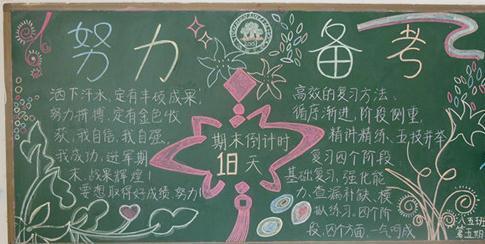 努力备考
洒下汗水,定有丰硕成果,
努力拼搏,定有金色收
获。我自信,我自强,
我成功,进军期
末,战果辉煌!
要想取得好成绩,努力!
期末倒计时
18天
高效的复习方法:
循序渐进,阶段侧重,
精讲精练、五技并举
复习四个阶段
基础复习,强化能
力、查漏补缺、模
拟练习。四个阶
段,四个方面,一气呵成
八五班
第五期